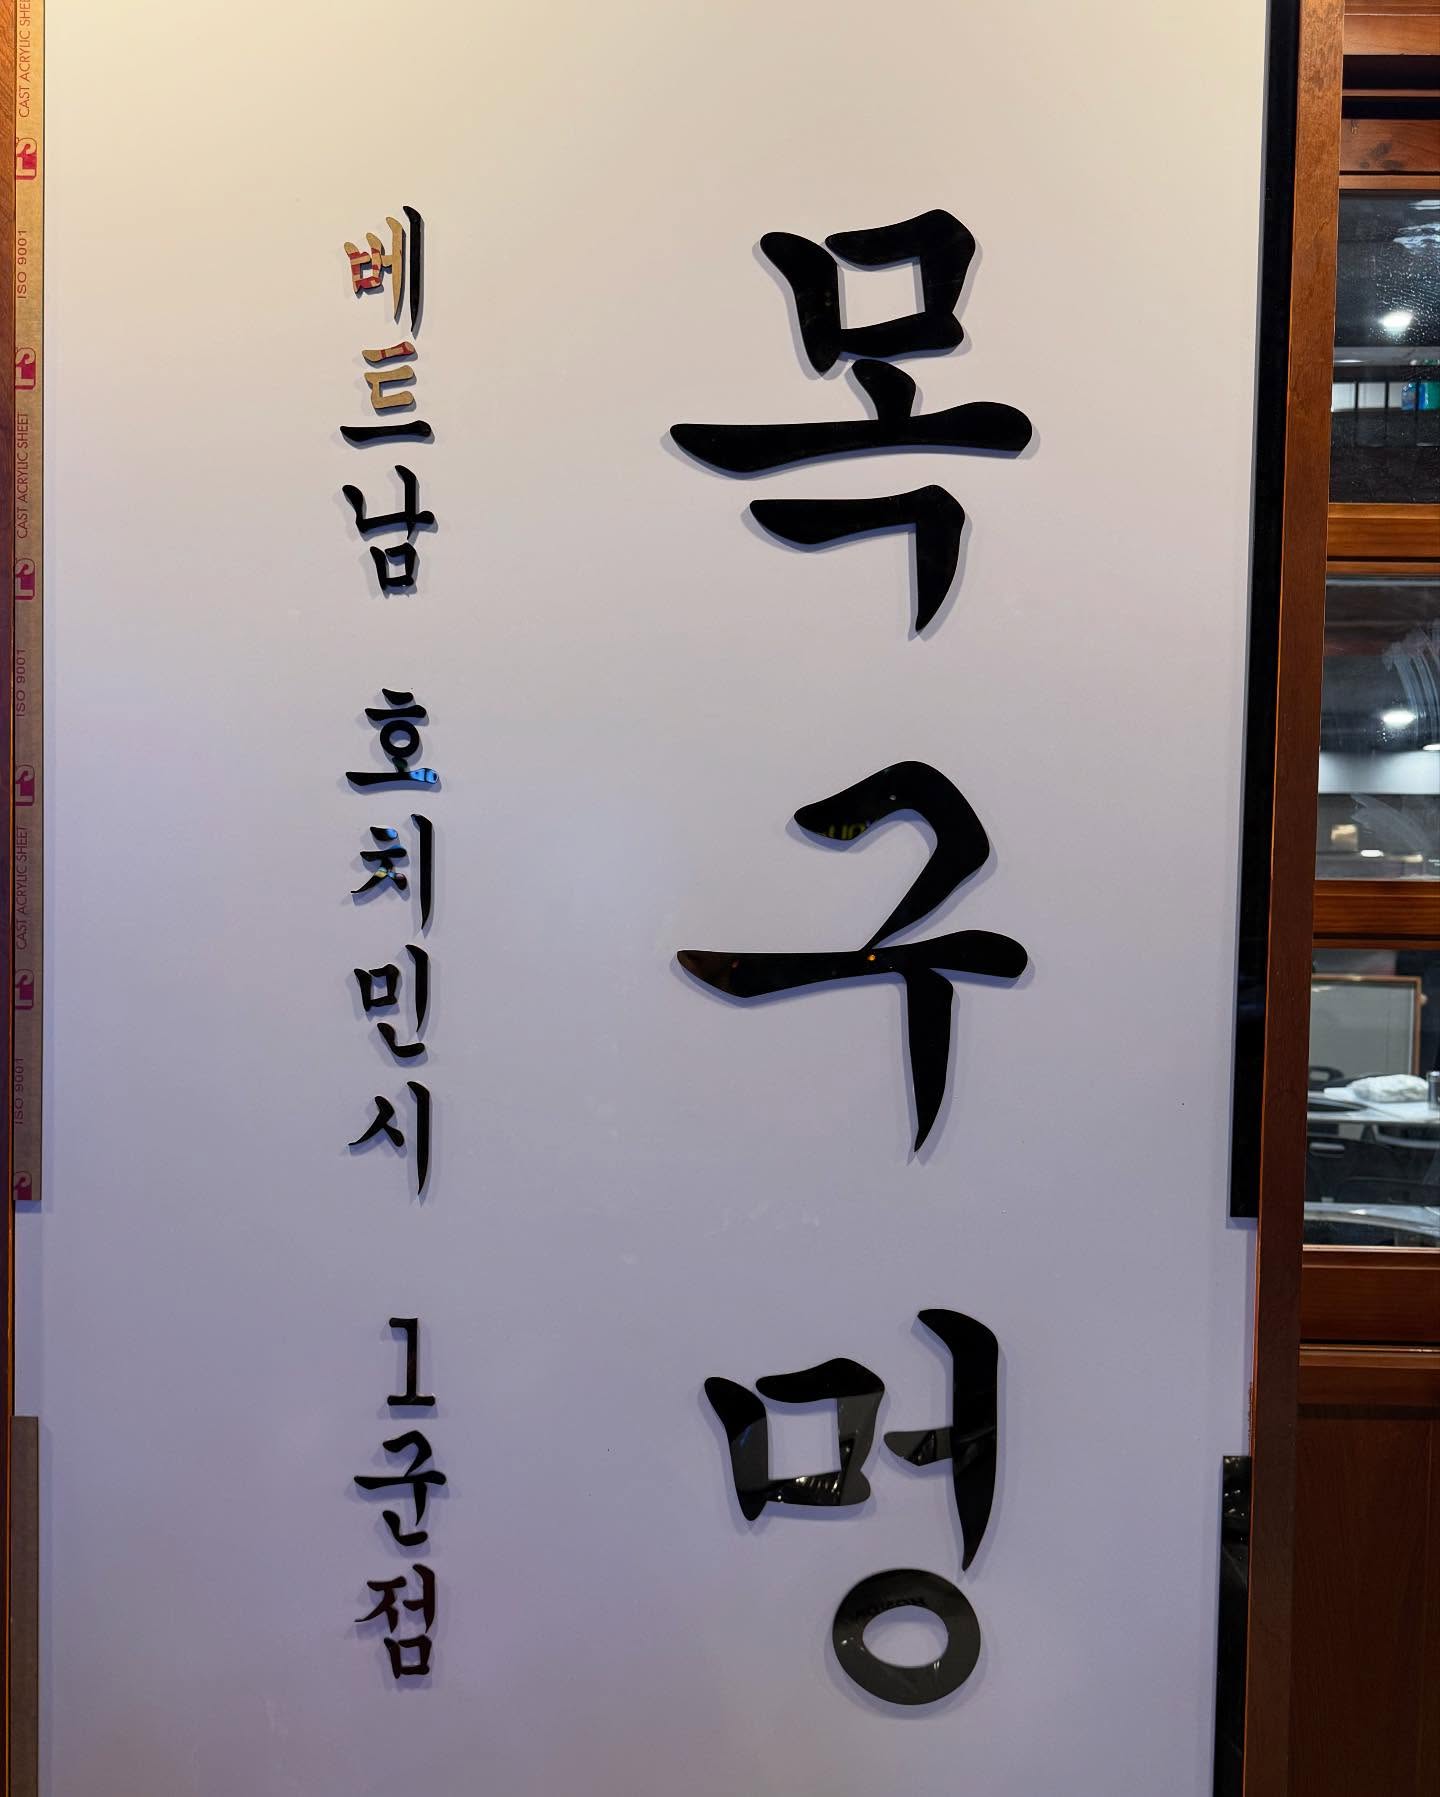 목구멍
베트남 호치민시 1군점
CAST ACRYLIC SHEET
ISO 9001
CAST ACRYLIC SHEET
ISO 9001
CAST ACRYLIC SHEET
ISO 9001